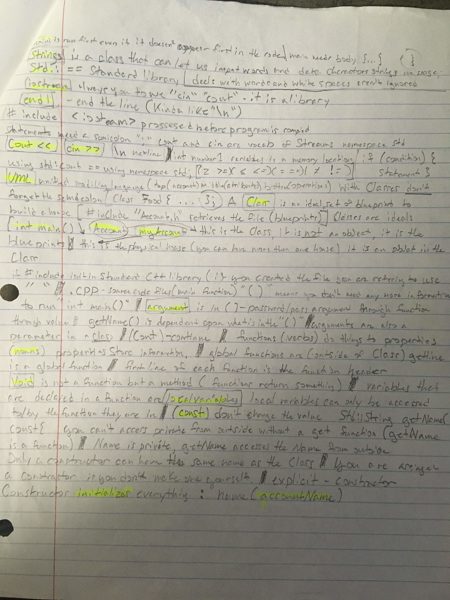 main is run first even if it doesn't appear first in the code / main needs body {...} { }
Strings is a class that can let us input words and data characters strings
Std:: == Standard library / deals with words and white spaces aren't ignored
iostream allows you to use "cin" "cout" . it is a library
endl - end the line (Kinda like "\n")
# include <iostream> processed before program is compiled
statements need a semicolon ";" cout and cin are vocab of Streams namespace std
Cout << Cin >> \n newline int number1 variables is a memory location if (condition) {
using std::cout == using namespace std; [< >= x <= == != ] Statement }
UML unified modeling language (top (account) middle (attributes) bottom (operations) With Classes don't
forget the semicolon Class Food { . . . }; A Class is an ideal, set of blueprint to
build a house # include "Account.h" retrieves the file (blueprints) Classes are ideals
int main() Account myAccount this is the Class, it is not an object, it is the
blueprints this is the physical house (you can have more than one house) it is an object in the
Class
if # include is built in Standard C++ library if you created the file you are retrieving to use
" " . CPP - source code files (main function) "( )" means you don't need any more information
to run int main() argument is in ( ) - password/pass argument through function
through value getName() is dependent upon what is in the "( )" arguments are also a
parameter in a class functions (verbs) do things to properties
(nouns) properties Store information, global functions are (outside of Class) getline
is a global function first line of each function is the function header
Void is not a function but a method (function return something) variables that
are declared in a function are local variables local variables can only be accessed
to/by the function they are in const don't change the value Std::String getName()
const { you can't access private from outside without a get function (getName
is a function) Name is private, getName accesses the Name from outside
Only a constructor can have the same name as the Class you are assigned
a constructor if you don't make one yourself explicit - constructor
Constructor initializes everything : name(accountName)